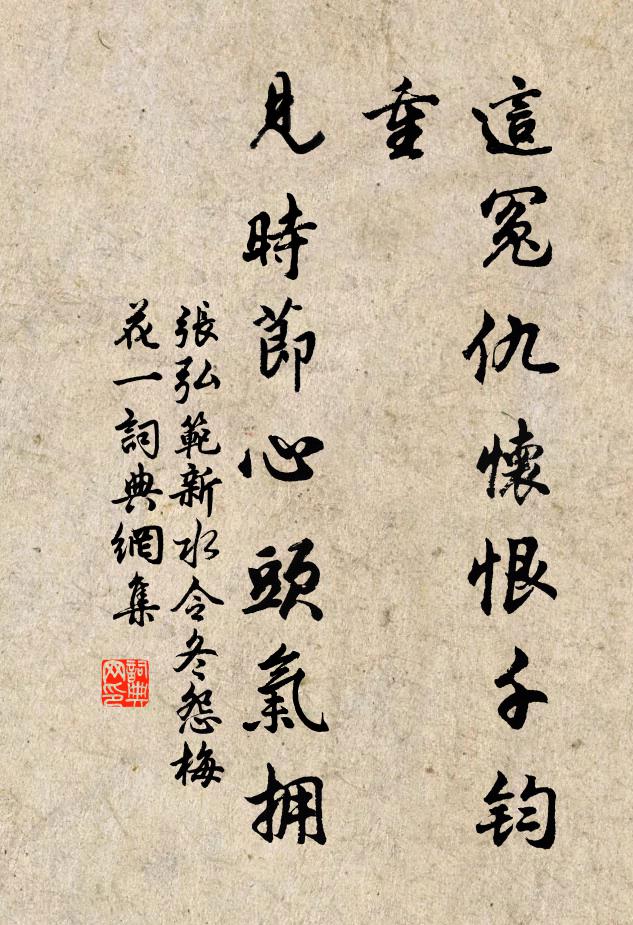 這冤仇懷恨千鈞
重
見時節心頭氣擁
張弘範新水令冬怨梅
花一詞典網集
詞典网印